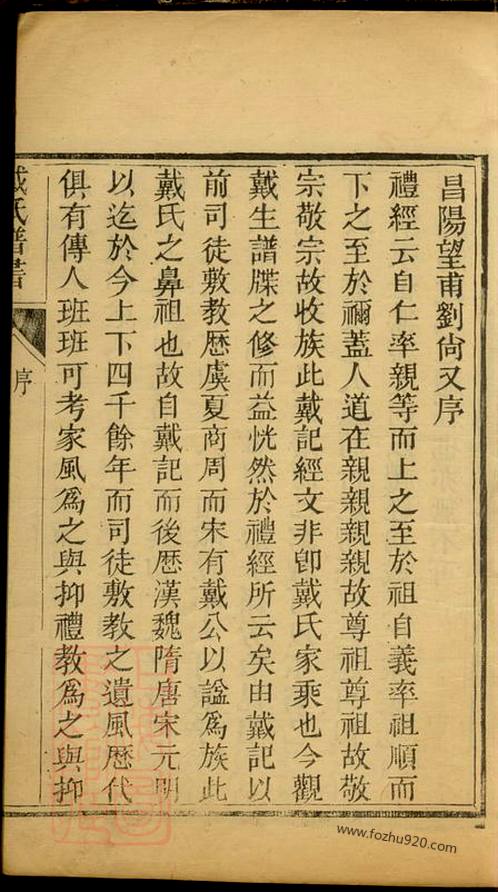 昌陽望甫劉尙又序
禮經云自仁率親等而上之至於祖自義率祖順而
下之至於禰蓋人道在親親親親故尊祖尊祖故敬
宗敬宗故收族此戴記經文非卽戴氏家乘也今觀
戴生譜牒之修而益恍然於禮經所云矣由戴記以
前司徒敷教歴虞夏商周而宋有戴公以諡爲族此
戴氏之鼻祖也故自戴記而後歴漢魏隋唐宋元明
以迄於今上下四千餘年而司徒敷教之遺風歴代
俱有傳人班班可考家風爲之與抑禮教爲之與抑
戴氏譜書
序
www.fozhu920.com